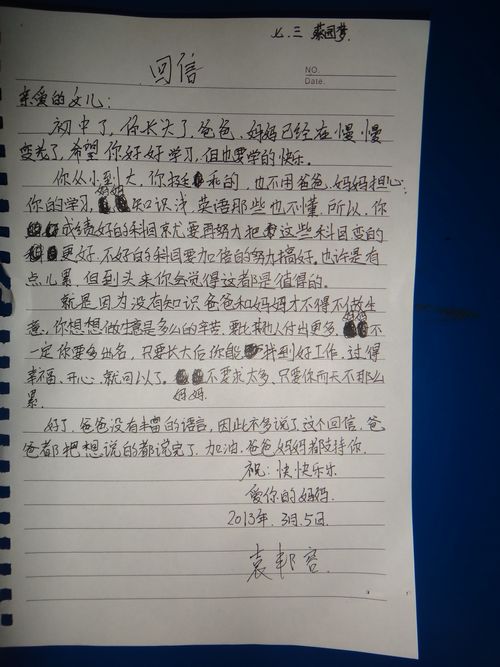 七.三 蔡园梦
回信
NO.
Date.
亲爱的女儿:
初中了,你长大了,爸爸、妈妈已经在慢慢
变老了,希望你好好学习,但也要学的快乐。
你从小到大,你挺乖的,也不用爸爸、妈妈担心
你的学习,妈妈知识浅,英语那些也不懂,所以,你
成绩好的科目就要再努力把这些科目变的
更好,不好的科目要加倍的努力搞好。也许是有
点儿累,但到头来你会觉得这都是值得的。
就是因为没有知识爸爸和妈妈才不得不做生
意,你想想做生意是多么的辛苦,要比其他人付出更多,妈妈不
一定你要多出名,只要长大后你能找到好工作,过得
幸福、开心,就可以了。妈妈不要求太多,只要你 不那么
累.
好了,爸爸没有丰富的语言,因此不多说了,这个回信,爸
爸都把想说的都说完了.加油.爸爸、妈妈都支持你.
祝:快快乐乐
爱你的妈妈.
2013年.3月.5日.
袁 容